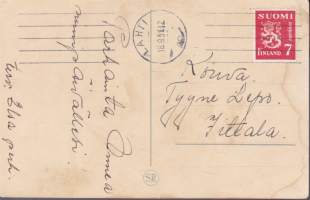 Parhainta Onnea
nimipäivällesi
terv. Elsa perh.
LAHTI
SUOMI
FINLAND 7
Rouva
Tyyne Lepo.
Jittala.